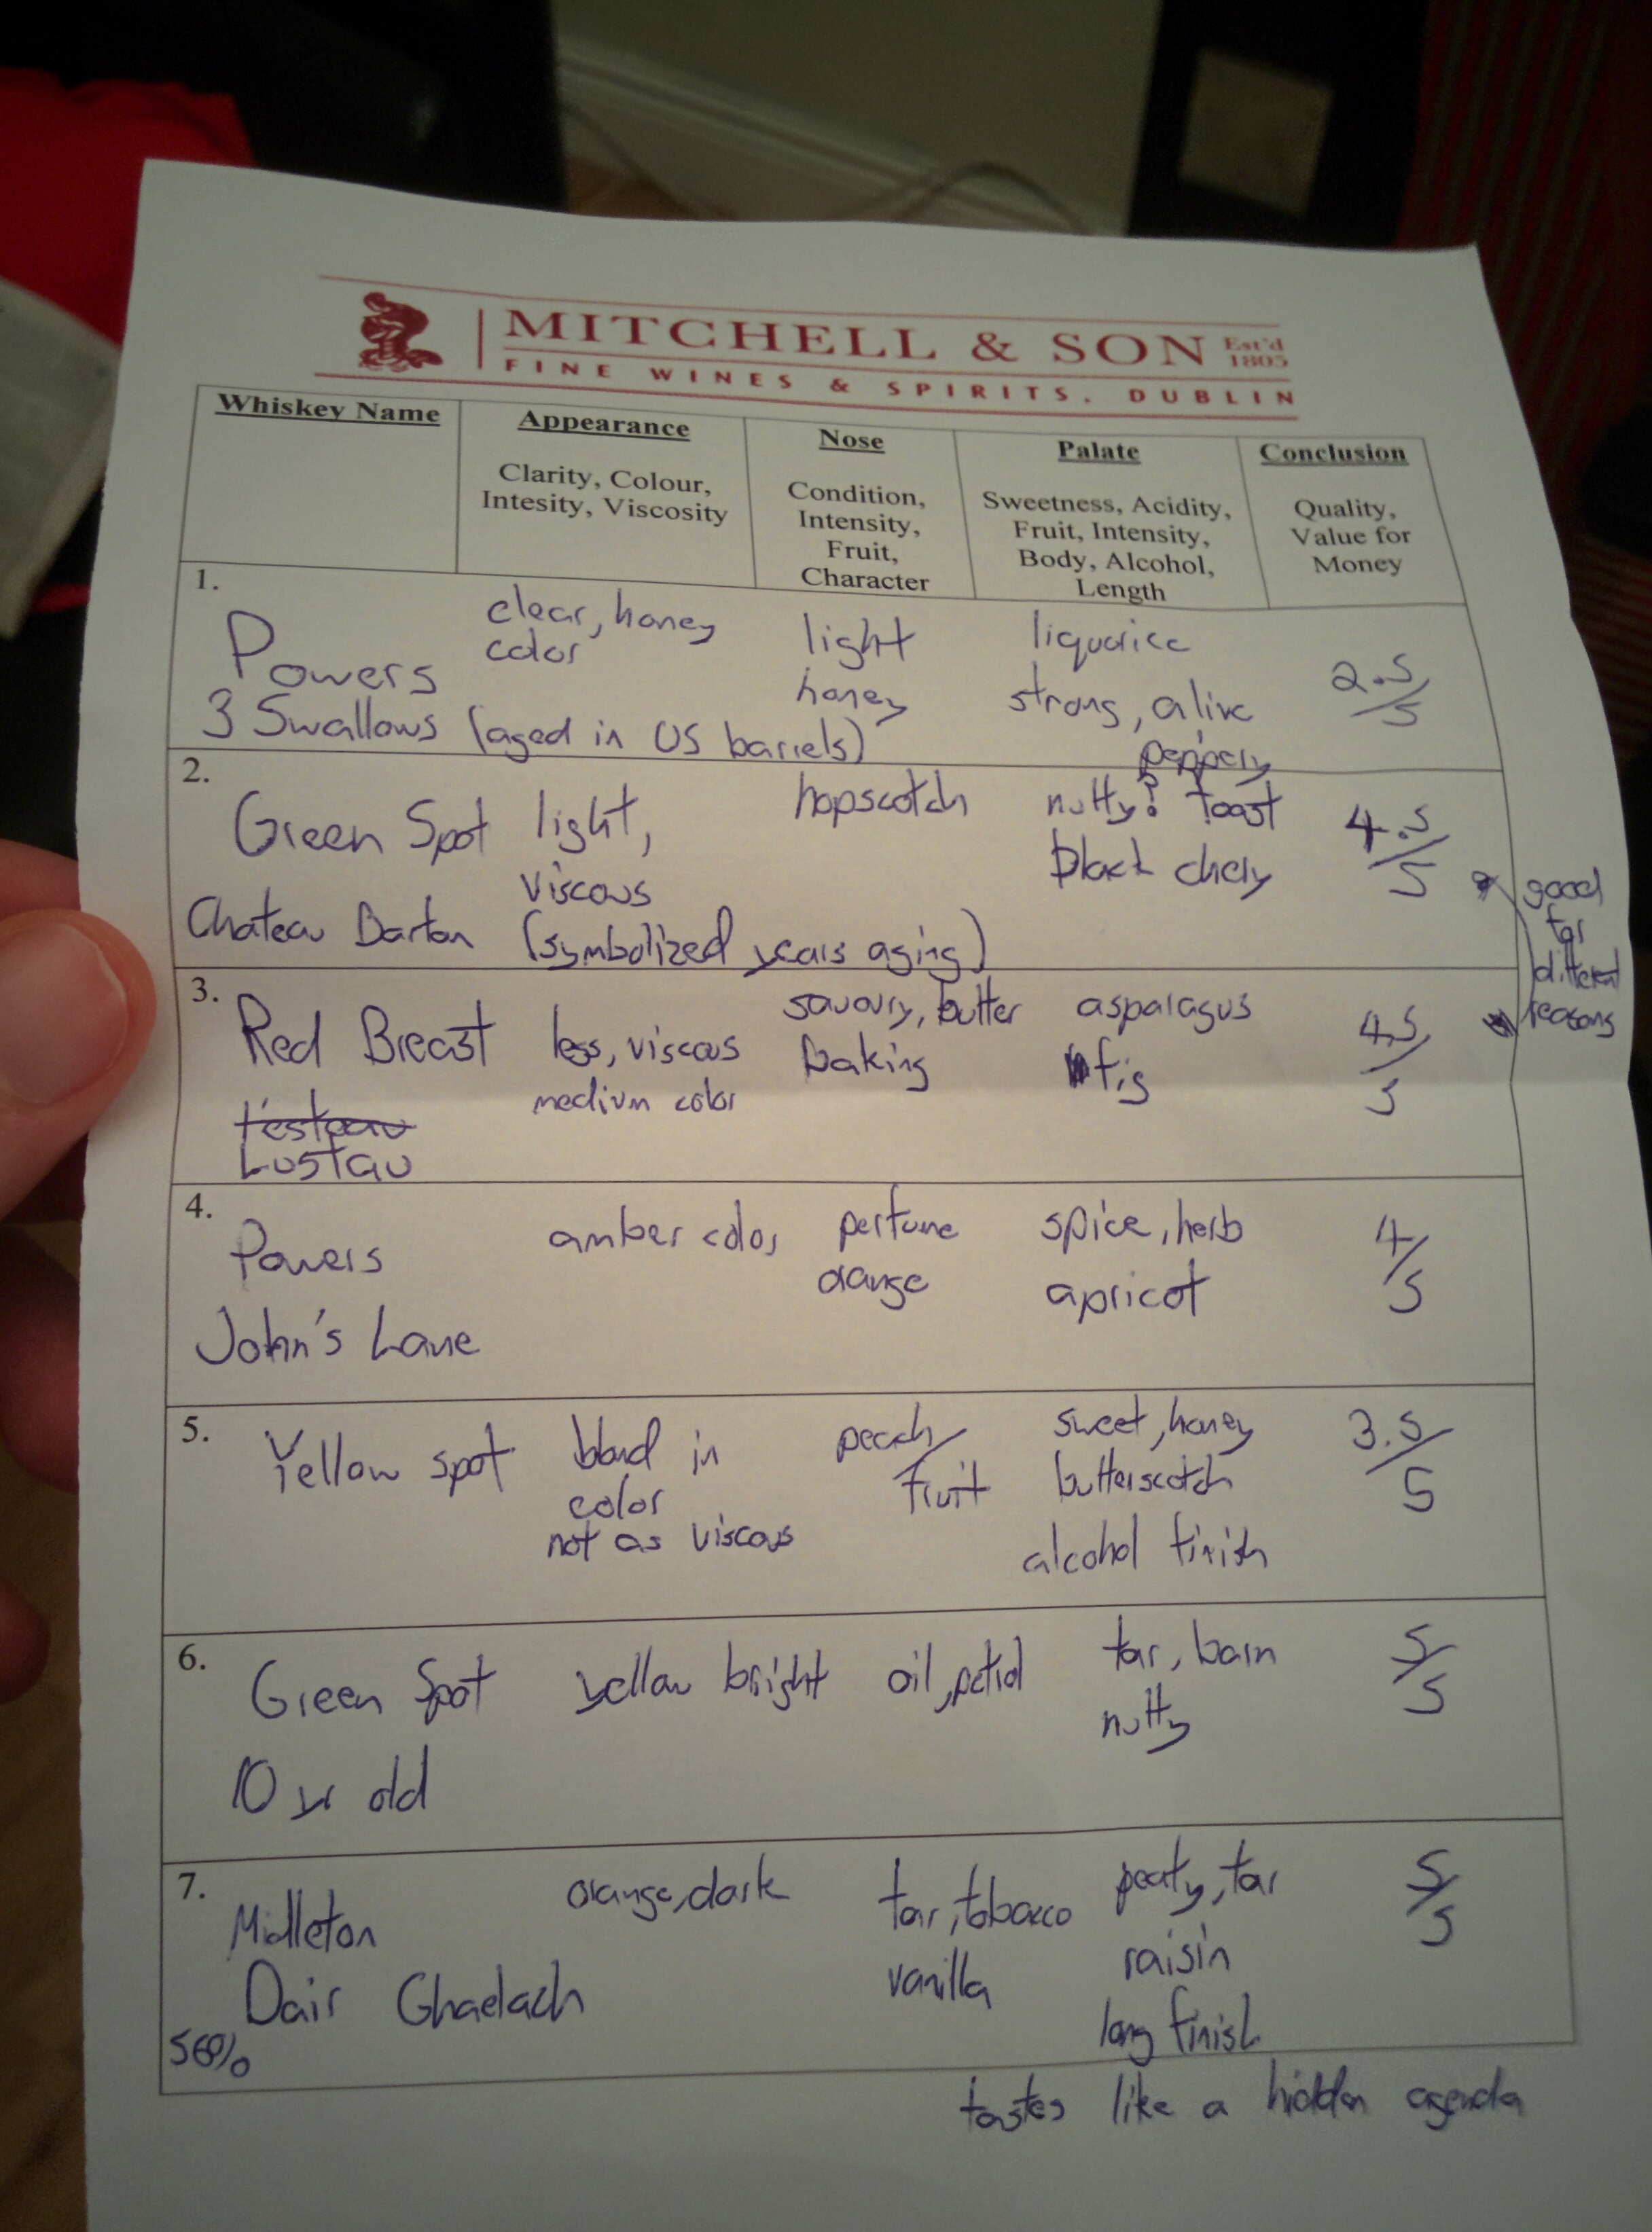 MITCHELL & SON Est'd 1805
FINE WINES & SPIRITS. DUBLIN
Whiskey Name
Appearance
Clarity, Colour,
Intesity, Viscosity
Nose
Condition,
Intensity,
Fruit,
Character
Palate
Sweetness, Acidity,
Fruit, Intensity,
Body, Alcohol,
Length
Conclusion
Quality,
Value for
Money
1.
Powers
3 Swallows (aged in US barrels)
clear, honey
color
light
honey
liquorice
strong, alive
peppery
2.5/5
2.
Green Spot
Chateau Barton (symbolized years aging)
light,
viscous
hopscotch
nutty? toast
black chery
4.5/5
good
for
different
reasons
3.
Red Breast
Lustau
less, viscous
medium color
savoury, butter
baking
asparagus
fig
4.5/5
4.
Powers
John's Lane
amber color
perfume
orange
spice, herb
apricot
4/5
5.
Yellow spot
blond in
color
not as viscous
peach/
fruit
sweet, honey
butterscotch
alcohol finish
3.5/5
6.
Green Spot
10 yr old
yellow bright
oil, petrol
tar, barn
nutty
5/5
7.
Midleton
Dair Ghaelach
orange, dark
tar, tobacco
vanilla
peaty, tar
raisin
long finish
5/5
tastes like a hidden agenda